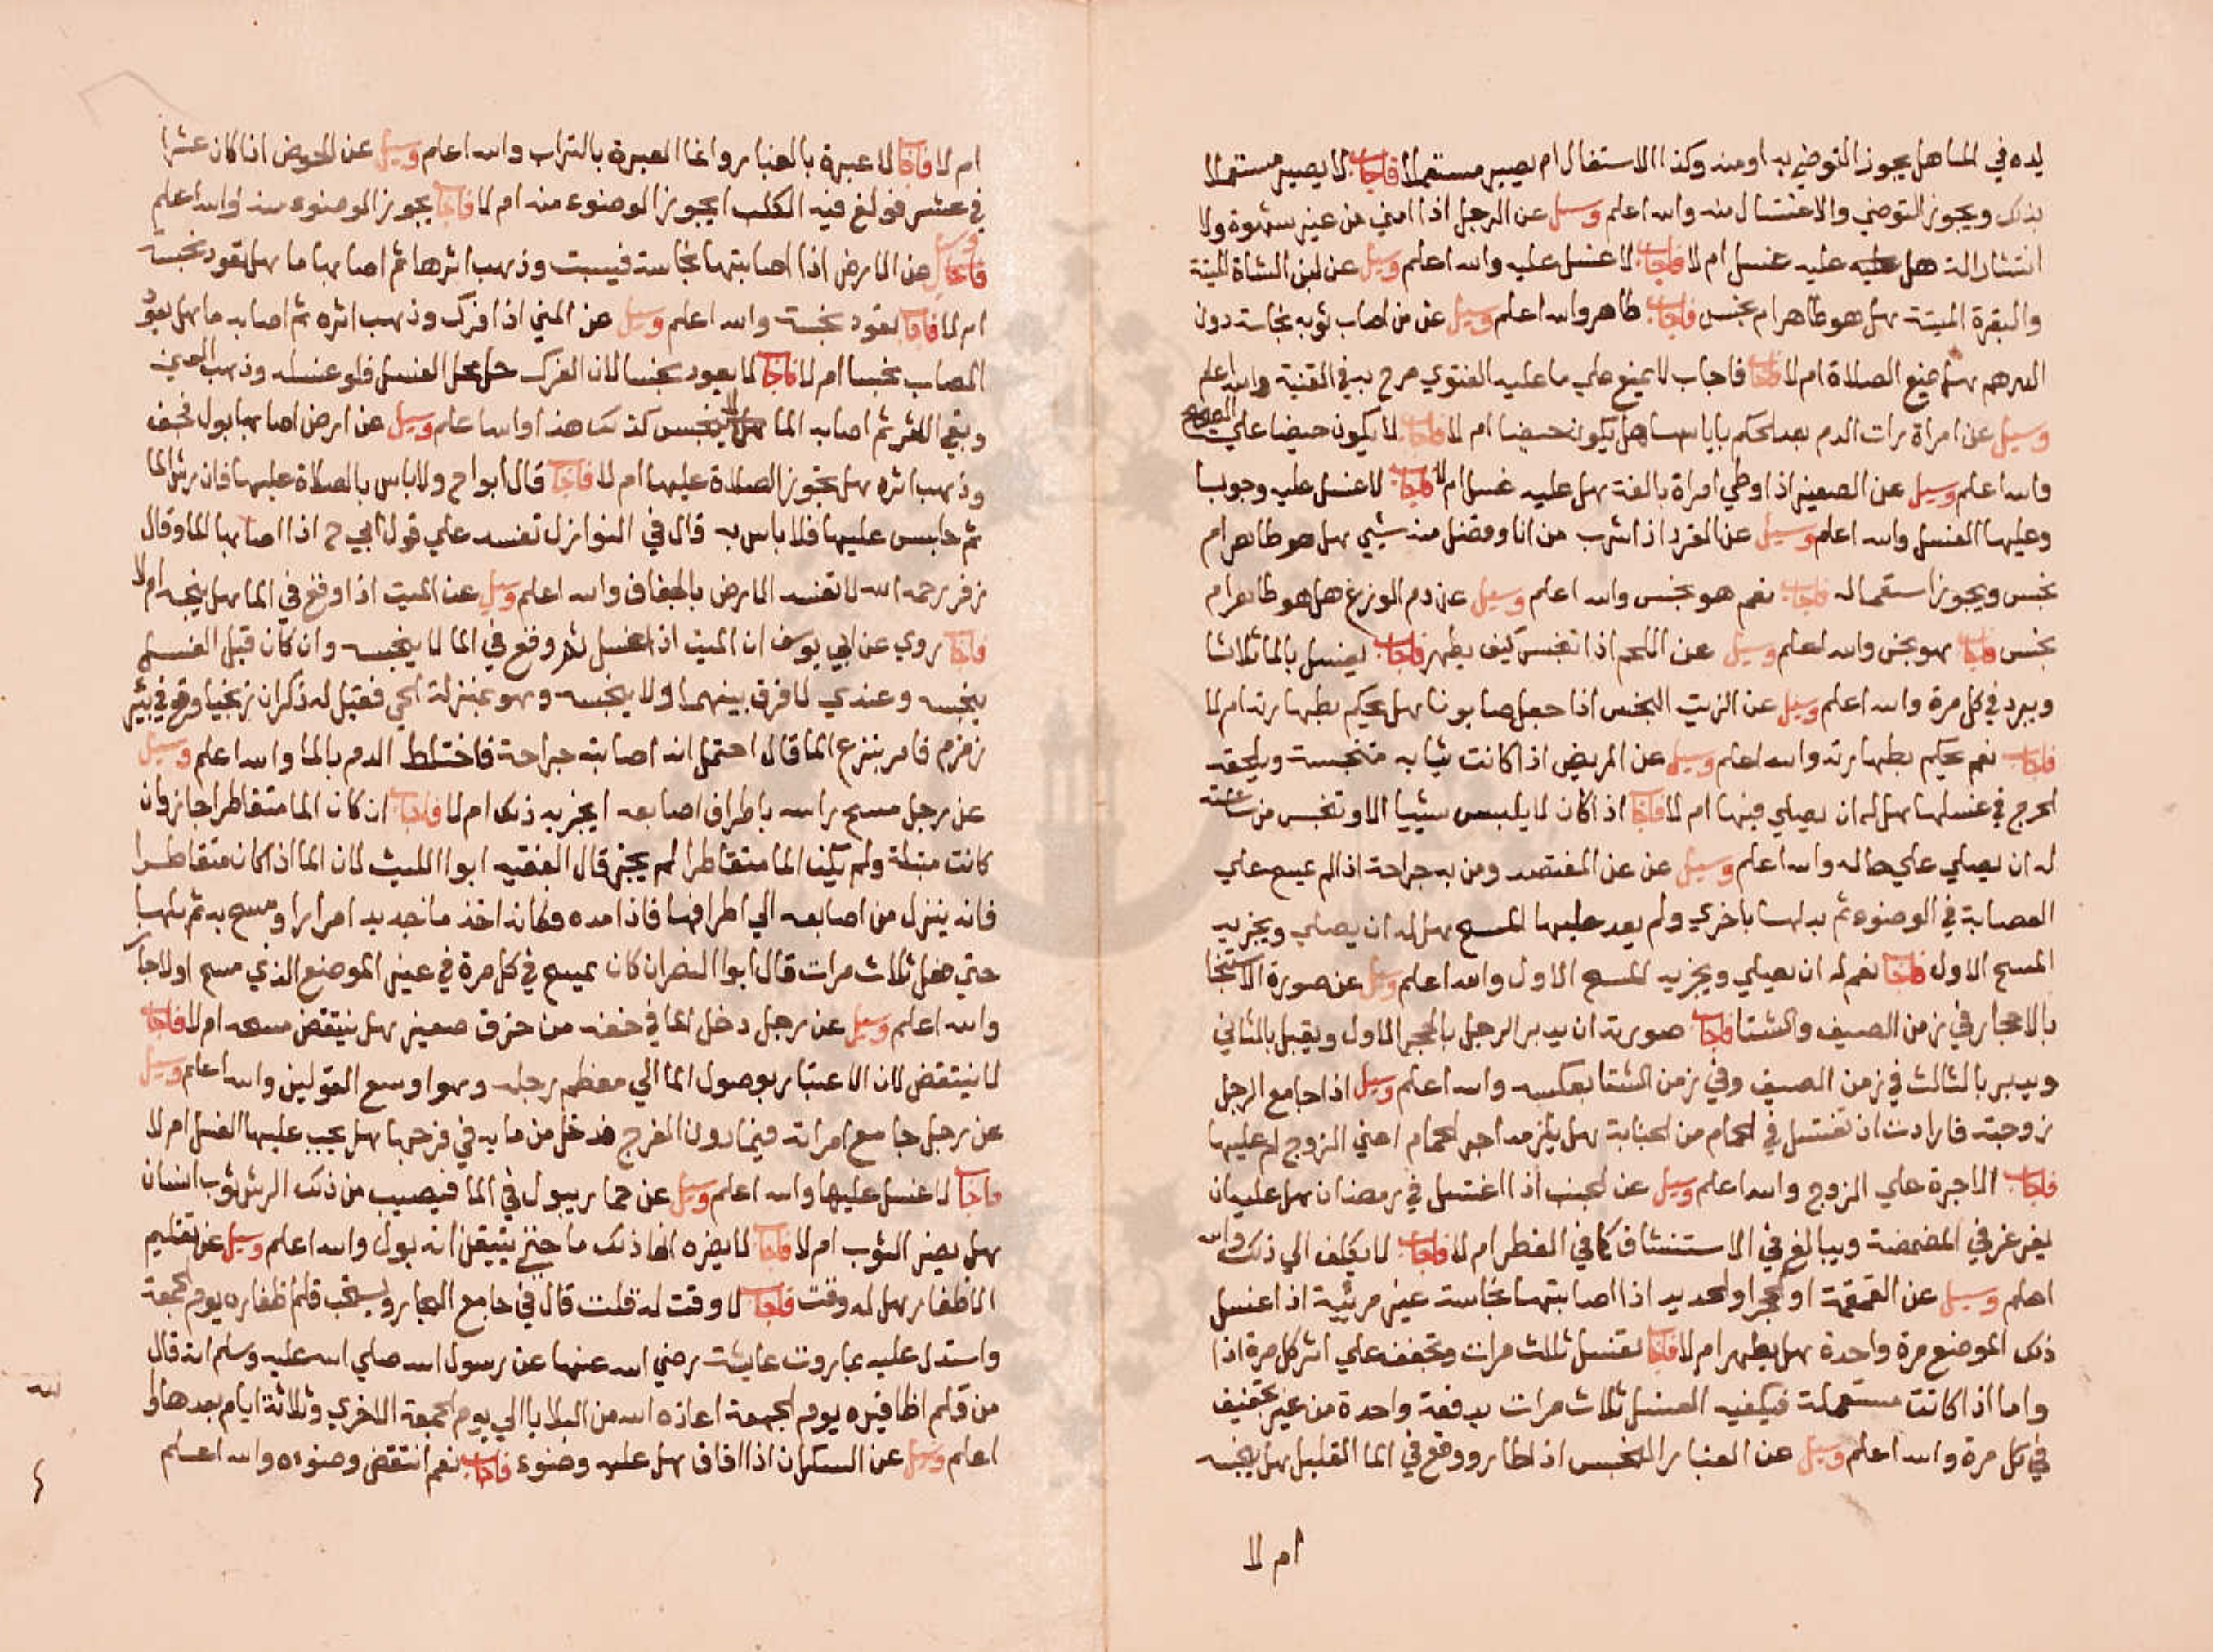 يده في الماء هل يجوز التوضي به او منه وكذا الاستفال ام يصير مستعملا فاجاب لا يصير مستعملا
بذلك ويجوز التوضي والاغتسال منه والله اعلم وسيل عن الرجل اذا امني من غير شهوة ولا
انتشار الة هل عليه غسل ام لا فاجاب لا غسل عليه والله اعلم وسيل عن لبن الشاة الميتة
والبقرة الميتة هل هو طاهر ام نجس فاجاب طاهر والله اعلم وسيل عن من اصاب ثوبه نجاسة دون
الدرهم هل تمنع الصلاة ام لا فاجاب فاجاب لا يمنع علي ما عليه الفتوي صرح به في القنية والله اعلم
وسيل عن امراة رات الدم بعد الحكم باياسها هل يكون حيضا ام لا فاجاب لا يكون حيضا علي الصحيح
والله اعلم وسيل عن الصغير اذا وطي امراة بالغة هل عليه غسل ام لا فاجاب لا غسل عليه وجوبا
وعليها الغسل والله اعلم وسيل عن القرد اذا شرب من انا وفضل منه شيي هل هو طاهر ام
نجس ويجوز استعماله فاجاب نعم هو نجس والله اعلم وسيل عن دم الوزغ هل هو طاهر ام
نجس فاجاب هو نجس والله اعلم وسيل عن اللحم اذا تنجس كيف يطهر فاجاب يغسل بالما ثلاثا
ويبرد في كل مرة والله اعلم وسيل عن الزيت النجس اذا جعل صابونا هل يحكم بطهارته ام لا
فاجاب نعم يحكم بطهارته والله اعلم وسيل عن المريض اذا كانت ثيابه متنجسة ويلحقه
الحرج في غسلها هل له ان يصلي فيها ام لا فاجاب اذا كان لا يلبس شييا الا وتنجس من ساعته
له ان يصلي علي حاله والله اعلم وسيل عن عن المفتصد ومن به جراحة اذا لم يمسح علي
العصابة في الوضوء ثم بدلها باخري ولم يعد عليها المسح هل له ان يصلي ويجزيه
المسح الاول فاجاب نعم له ان يصلي ويجزيه المسح الاول والله اعلم وسيل عن صورة الاستنجا
بالاحجار في زمن الصيف والشتا فاجاب صورته ان يدبر الرجل بالحجر الاول ويقبل بالثاني
ويدبر بالثالث في زمن الصيف وفي زمن الشتا بعكسه والله اعلم وسيل اذا جامع الرجل
زوجته فارادت ان تغتسل في الحمام من الجنابة هل يلزمه اجر الحمام اعني الزوج ام عليها
فاجاب الاجرة علي الزوج والله اعلم وسيل عن الجنب اذا اغتسل في رمضان هل عليه ان
يغرغر في المضمضة ويبالغ في الاستنشاق كما في الفطر ام لا فاجاب لا يكلف الي ذلك والله
اعلم وسيل عن القمقمة او الحجر او الحديد اذا اصابتها نجاسة غير مرئية اذا غسل
ذلك الموضع مرة واحدة هل يطهر ام لا فاجاب تغسل ثلاث مرات وتجفف علي اثر كل مرة اذا
واما اذا كانت مستعملة فيكفيه الغسل ثلاث مرات بدفعة واحدة من غير تجفيف
في كل مرة والله اعلم وسيل عن الغبار النجس اذا طار ووقع في الما القليل هل ينجسه
ام لا
ام لا فاجاب لا عبرة بالغبار وانما العبرة بالتراب والله اعلم وسيل عن الحوض اذا كان عشرا
في عشر فولغ فيه الكلب ايجوز الوضوء منه ام لا فاجاب يجوز الوضوء منه والله اعلم
وسيل عن الارض اذا اصابتها نجاسة فيبست وذهب اثرها ثم اصابها ما هل تعود نجسة
ام لا فاجاب تعود نجسة والله اعلم وسيل عن المني اذا فرك وذهب اثره ثم اصابه ما هل يعود
المصاب نجسا ام لا فاجاب لا يعود نجسا لان الفرك حل محل الغسل فلو غسله وذهب العين
وبقي الاثر ثم اصابه الما لا ينجس كذلك هذا والله اعلم وسيل عن ارض اصابها بول فجف
وذهب اثره هل تجوز الصلاة عليها ام لا فاجاب قال ابو ح ولا باس بالصلاة عليها فان رش الما
ثم جلس عليها فلا باس به قال في النوازل تفسد علي قول ابي ح اذا اصابها الما وقال
زفر رحمه الله لا تفسد الارض بالجفاف والله اعلم وسيل عن الميت اذا وقع في الما هل ينجسه ام لا
فاجاب روي عن ابي يوسف ان الميت اذا غسل ثم وقع في الما لا ينجسه وان كان قبل الغسل
ينجسه وعندي لا فرق بينهما ولا ينجسه وهو بمنزلة الحي فقيل له ذكر ان زنجيا وقع في بئر
زمزم فامر بنزع الما قال احتمل انه اصابته جراحة فاختلط الدم بالما والله اعلم وسيل
عن رجل مسح راسه باطراف اصابعه ايجزيه ذلك ام لا فاجاب ان كان الما متقاطرا جاز وان
كانت مبتلة ولم يكن الما متقاطرا لم يجز قال الفقيه ابو الليث لان الما اذا كان متقاطرا
فانه ينزل من اصابعه الي اطرافها فاذا مده فكانه اخذ ما جديد امرارا ومسح به ثم بلها
حتي فعل ثلاث مرات قال ابو النصر ان كان يمسح في كل مرة في غير الموضع الذي مسح اولا جاز
والله اعلم وسيل عن رجل دخل الما في خفه من خرق صغير هل ينتقض مسحه ام لا فاجاب
لا ينتقض لان الاعتبار بوصول الما الي معظم رجله وهو اوسع القولين والله اعلم وسيل
عن رجل جامع امراته فيما دون الفرج فدخل من مايه في فرجها هل يجب عليها الغسل ام لا
فاجاب لا غسل عليها والله اعلم وسيل عن حمار يبول في الما فيصيب من ذلك الرش ثوب انسان
هل يضر الثوب ام لا فاجاب لا يضره ذلك ما حتي يتيقن انه بول والله اعلم وسيل عن تقليم
الاظفار هل له وقت فاجاب لا وقت له قلت قال في جامع البحار ويستحب قلم اظفاره يوم الجمعة
واستدل عليه بما روت عايشة رضي الله عنها عن رسول الله صلي الله عليه وسلم انه قال
من قلم اظافيره يوم الجمعة اعاذه الله من البلايا الي يوم الجمعة الاخري وثلاثة ايام بعدها والله
اعلم وسيل عن السكران اذا افاق هل عليه وضوء فاجاب نعم انتقض وضوءه والله اعلم